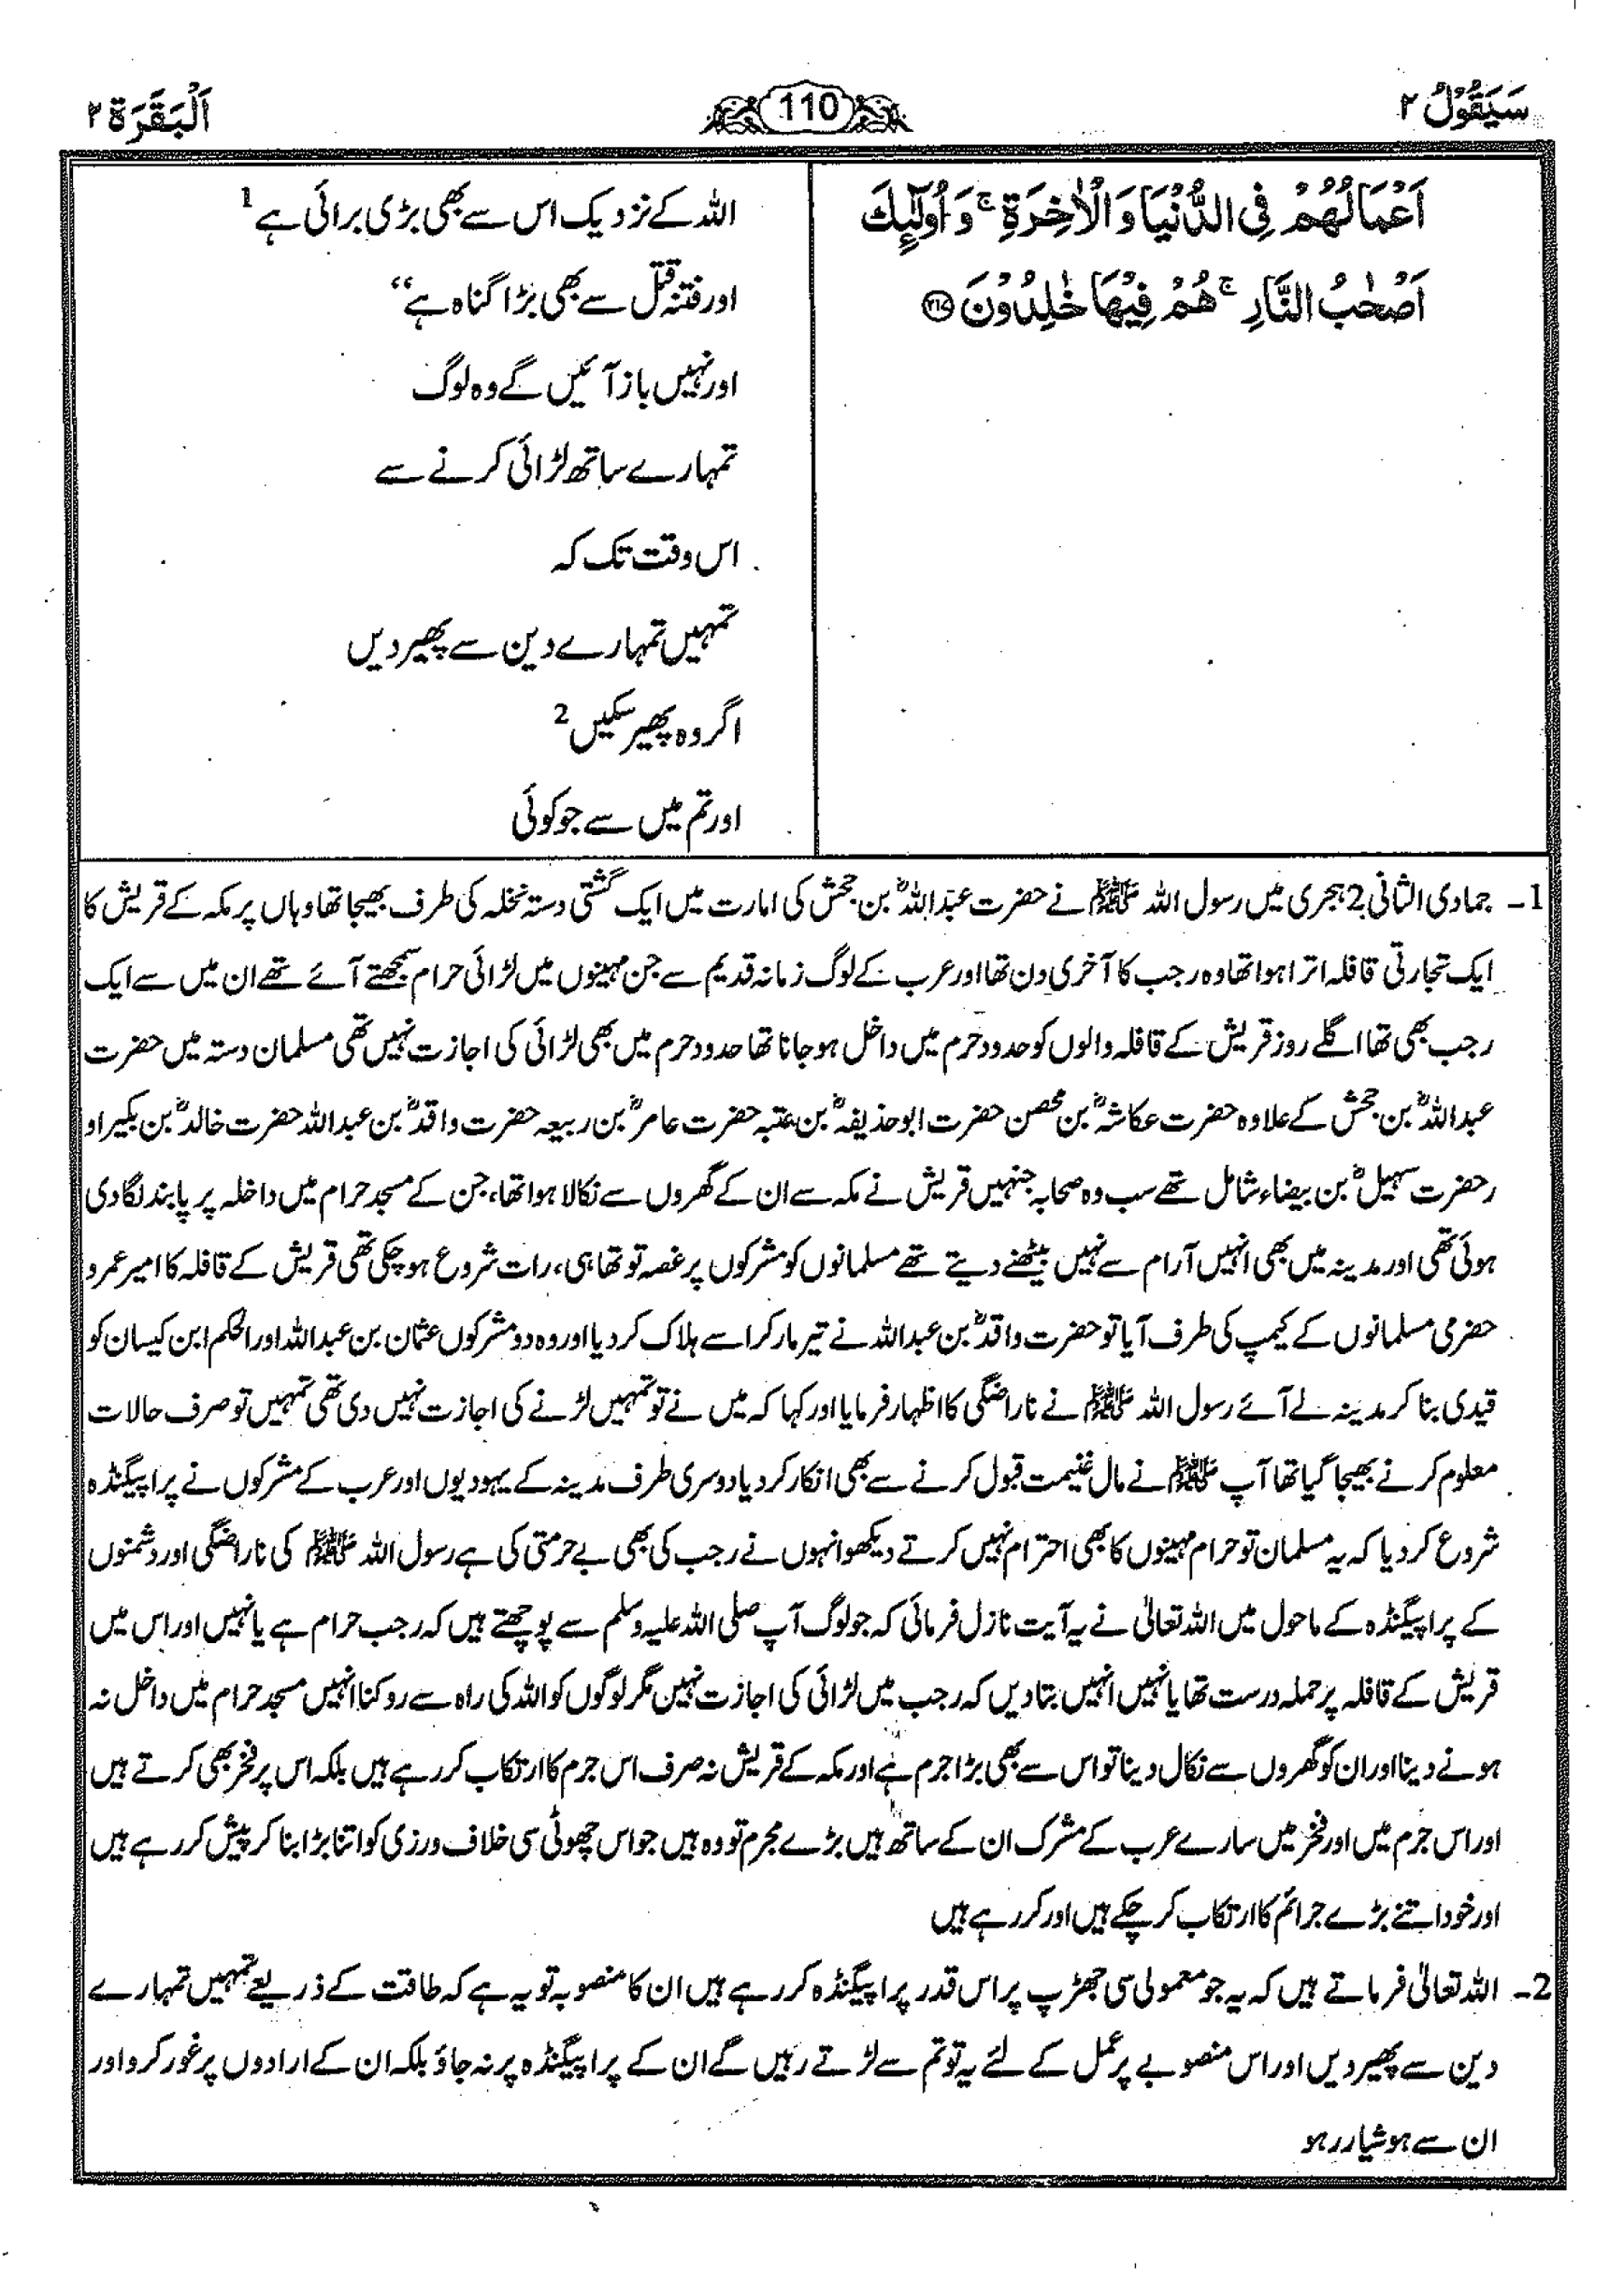 سَيَقُوْلُ ٢
110
اَلْبَقَرَة ٢
اَعْمَالُهُمْ فِى الدُّنْيَا وَالْاٰخِرَةِ ۚ وَاُولٰٓئِكَ
اَصْحٰبُ النَّارِ ۚ هُمْ فِيْهَا خٰلِدُوْنَ ۝٢١٧
اللہ کے نزدیک اس سے بھی بڑی برائی ہے 1
اور فتنہ قتل سے بھی بڑا گناہ ہے‘‘
اور نہیں باز آئیں گے وہ لوگ
تمہارے ساتھ لڑائی کرنے سے
اس وقت تک کہ
تمہیں تمہارے دین سے پھیر دیں
اگر وہ پھیر سکیں 2
اور تم میں سے جو کوئی
1۔ جمادی الثانی 2 ہجری میں رسول اللہ ﷺ نے حضرت عبداللہؓ بن جحش کی امارت میں ایک گشتی دستہ نخلہ کی طرف بھیجا تھا وہاں پر مکہ کے قریش کا
ایک تجارتی قافلہ اترا ہوا تھا وہ رجب کا آخری دن تھا اور عرب کے لوگ زمانہ قدیم سے جن مہینوں میں لڑائی حرام سمجھتے آئے تھے ان میں سے ایک
رجب بھی تھا اگلے روز قریش کے قافلہ والوں کو حدود حرم میں داخل ہو جانا تھا حدود حرم میں بھی لڑائی کی اجازت نہیں تھی مسلمان دستہ میں حضرت
عبداللہؓ بن جحش کے علاوہ حضرت عکاشہؓ بن محصن حضرت ابو حذیفہؓ بن عتبہ حضرت عامرؓ بن ربیعہ حضرت واقدؓ بن عبداللہ حضرت خالدؓ بن بکیر او
ر حضرت سہیلؓ بن بیضاء شامل تھے سب وہ صحابہ جنہیں قریش نے مکہ سے ان کے گھروں سے نکالا ہوا تھا، جن کے مسجد حرام میں داخلہ پر پابند لگا دی
ہوئی تھی اور مدینہ میں بھی انہیں آرام سے نہیں بیٹھنے دیتے تھے مسلمانوں کو مشرکوں پر غصہ تو تھا ہی، رات شروع ہو چکی تھی قریش کے قافلہ کا امیر عمرو
حضرمی مسلمانوں کے کیمپ کی طرف آیا تو حضرت واقدؓ بن عبداللہ نے تیر مار کر اسے ہلاک کر دیا اور وہ دو مشرکوں عثمان بن عبداللہ اور الحکم ابن کیسان کو
قیدی بنا کر مدینہ لے آئے رسول اللہ ﷺ نے ناراضگی کا اظہار فرمایا اور کہا کہ میں نے تو تمہیں لڑنے کی اجازت نہیں دی تھی تمہیں تو صرف حالات
معلوم کرنے بھیجا گیا تھا آپ ﷺ نے مال غنیمت قبول کرنے سے بھی انکار کر دیا دوسری طرف مدینہ کے یہودیوں اور عرب کے مشرکوں نے پراپیگنڈہ
شروع کر دیا کہ یہ مسلمان تو حرام مہینوں کا بھی احترام نہیں کرتے دیکھو انہوں نے رجب کی بھی بے حرمتی کی ہے رسول اللہ ﷺ کی ناراضگی اور دشمنوں
کے پراپیگنڈہ کے ماحول میں اللہ تعالیٰ نے یہ آیت نازل فرمائی کہ جو لوگ آپ صلی اللہ علیہ وسلم سے پوچھتے ہیں کہ رجب حرام ہے یا نہیں اور اس میں
قریش کے قافلہ پر حملہ درست تھا یا نہیں انہیں بتا دیں کہ رجب میں لڑائی کی اجازت نہیں مگر لوگوں کو اللہ کی راہ سے روکنا انہیں مسجد حرام میں داخل نہ
ہونے دینا اور ان کو گھروں سے نکال دینا تو اس سے بھی بڑا جرم ہے اور مکہ کے قریش نہ صرف اس جرم کا ارتکاب کر رہے ہیں بلکہ اس پر فخر بھی کرتے ہیں
اور اس جرم میں اور فخر میں سارے عرب کے مشرک ان کے ساتھ ہیں بڑے مجرم تو وہ ہیں جو اس چھوٹی سی خلاف ورزی کو اتنا بڑا بنا کر پیش کر رہے ہیں
اور خود اتنے بڑے جرائم کا ارتکاب کر چکے ہیں اور کر رہے ہیں
2۔ اللہ تعالیٰ فرماتے ہیں کہ یہ جو معمولی سی جھڑپ پر اس قدر پراپیگنڈہ کر رہے ہیں ان کا منصوبہ تو یہ ہے کہ طاقت کے ذریعے تمہیں تمہارے
دین سے پھیر دیں اور اس منصوبے پر عمل کے لئے یہ تو تم سے لڑتے رہیں گے ان کے پراپیگنڈہ پر نہ جاؤ بلکہ ان کے ارادوں پر غور کرو اور
ان سے ہوشیار رہو